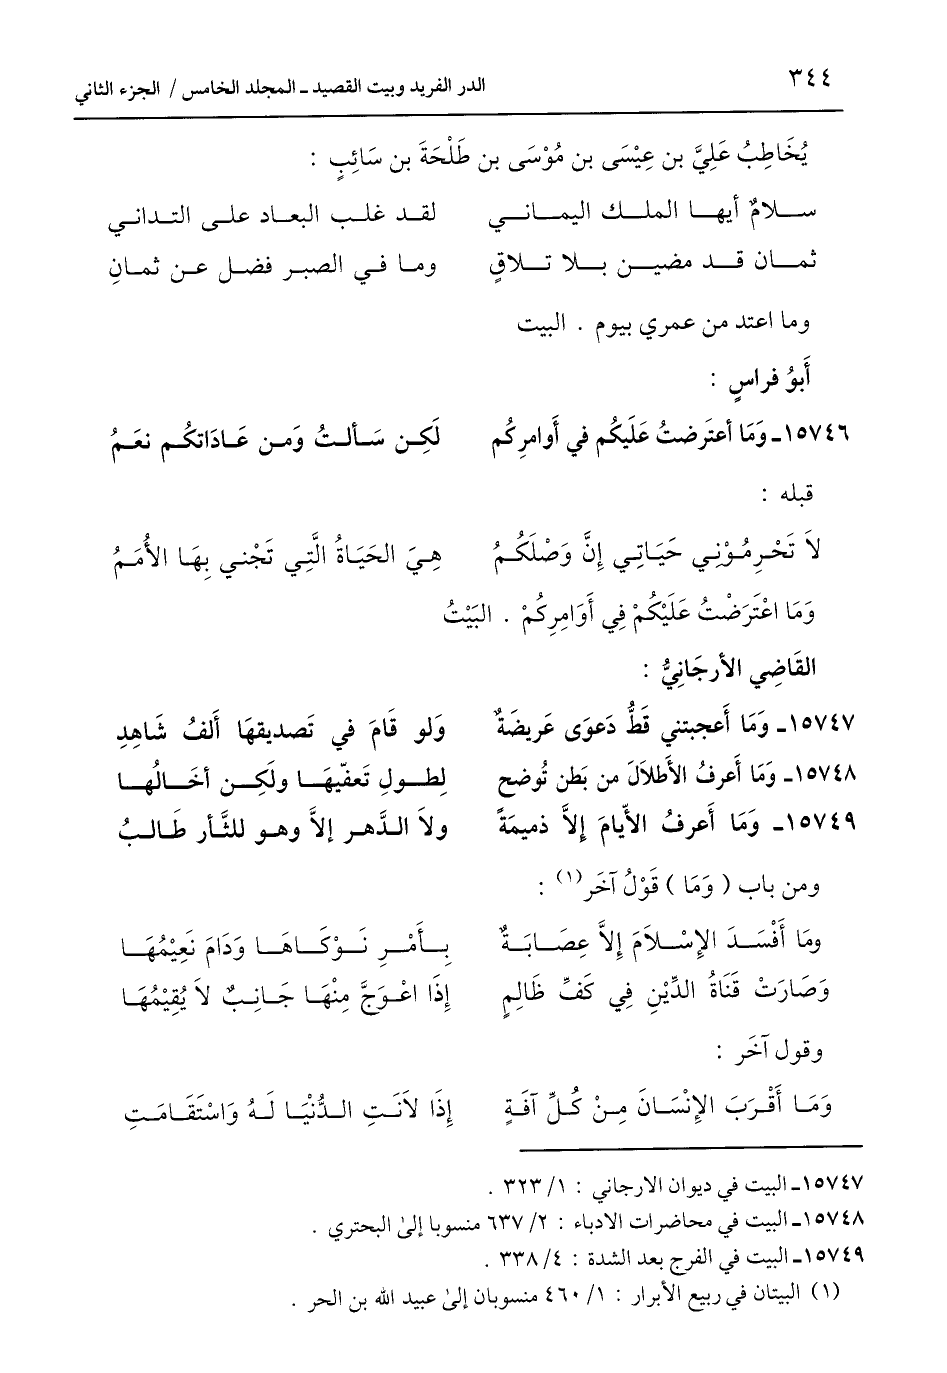 ٣٤٤ الدر الفريد وبيت القصيد ـ المجلد الخامس / الجزء الثاني
يُخَاطِبُ عَلِيَّ بن عِيْسَى بن مُوْسَى بن طَلْحَةَ بن سَائِبٍ :
سـلامٌ أيهـا الملـك اليمـانـي لقـد غلـب البعـاد علـى التـدانـي
ثمـان قـد مضيـن بـلا تـلاقٍ ومـا فـي الصبـر فضـل عـن ثمـانِ
وما اعتد من عمري بيوم . البيت
أَبوُ فراسٍ :
١٥٧٤٦ـ وَمَا أعتَرضتُ عَلَيكُم في أَوامرِكُم لَكِـن سَـألـتُ وَمـن عَـادَاتكُـم نعَـمُ
قبله :
لاَ تَحْرِمُوْنِي حَيَاتِي إِنَّ وَصْلَكُمُ هِيَ الحَيَاةُ الَّتِي تَجْني بِهَا الأُمَمُ
وَمَا اعْتَرَضْتُ عَلَيْكُمْ فِي أَوَامِرِكُمْ . البَيْتُ
القَاضِي الأرجَانِيُّ :
١٥٧٤٧ـ وَمَا أَعجبتني قَطُّ دَعوَى عَريضَةٌ وَلو قَامَ في تَصديقهَا أَلفُ شَاهِدِ
١٥٧٤٨ـ وَمَا أَعرفُ الأَطلاَلَ من بَطن تُوضح لِطـولِ تَعفّيهَـا ولكـن أخَـالُهـا
١٥٧٤٩ـ وَمَا أَعرفُ الأيّامَ إلاَّ ذميمَةً ولاَ الدَّهـر إلاَّ وهـو للثَّـأر طَالـبُ
ومن باب ( وَمَا ) قَوْلُ آخَر(١) :
ومَا أَفْسَـدَ الإِسْـلاَمَ إِلاَّ عِصَـابَـةٌ بِـأَمْـرِ نَـوْكَـاهَـا وَدَامَ نَعِيْمُهَـا
وَصَارَتْ قَنَاةُ الدِّيْنِ فِي كَفِّ ظَالِمٍ إِذَا اعْـوَجَّ مِنْهَـا جَـانِـبٌ لاَ يُقِيْمُهَـا
وقول آخَر :
وَمَـا أَقْـرَبَ الإِنْسَـانَ مِـنْ كُـلِّ آفَـةٍ إِذَا لاَنَـتِ الـدُّنْيَـا لَـهُ وَاسْتَقَـامَـتِ
١٥٧٤٧ـ البيت في ديوان الارجاني : ١/ ٣٢٣ .
١٥٧٤٨ـ البيت في محاضرات الادباء : ٢/ ٦٣٧ منسوبا إلىٰ البحتري .
١٥٧٤٩ـ البيت في الفرج بعد الشدة : ٤/ ٣٣٨ .
(١) البيتان في ربيع الأبرار : ١/ ٤٦٠ منسوبان إلىٰ عبيد الله بن الحر .